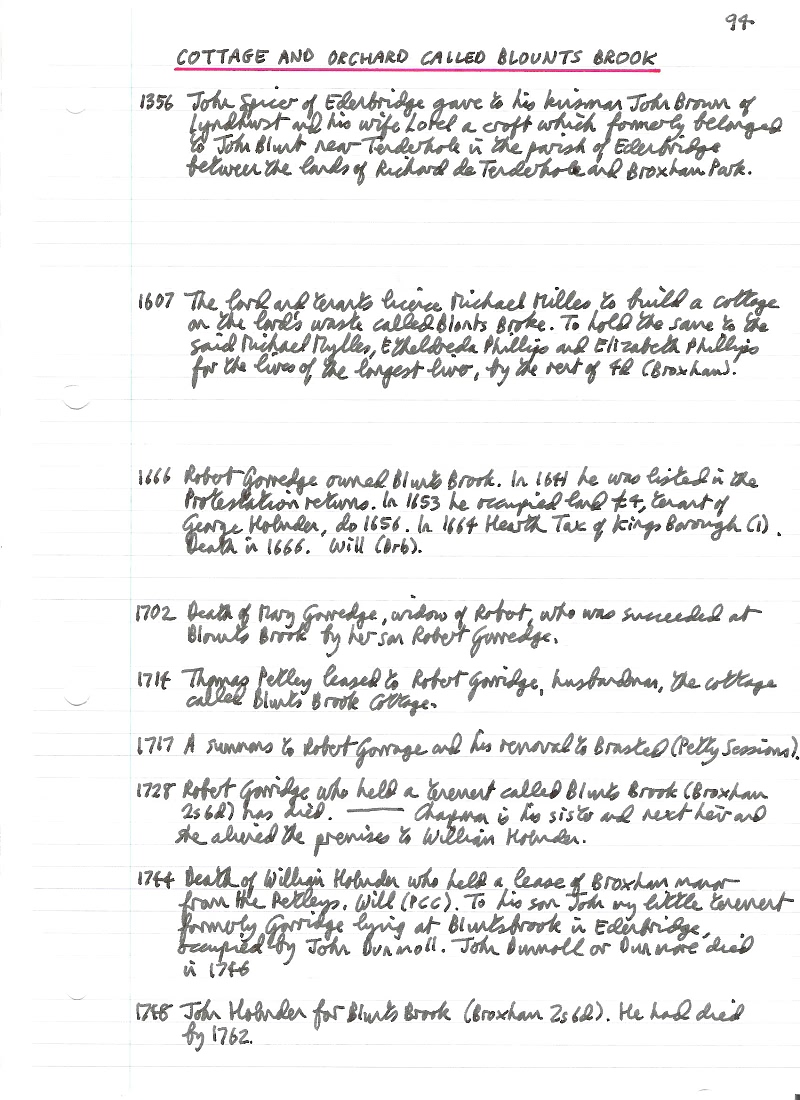 94
COTTAGE AND ORCHARD CALLED BLOUNTS BROOK
1356 John Spicer of Edenbridge gave to his kinsman John Brown of
Lyndhurst and his wife Lovel a croft which formerly belonged
to John Blunt near Tenderhole in the parish of Edenbridge
between the lands of Richard de Tenderhole and Broxham Park.
1607 The lord and tenants licence Michael Milles to build a cottage
on the lord's waste called Blonts Broke. To hold the same to the
said Michael Mylles, Etheldreda Phillips and Elizabeth Phillips
for the lives of the longest liver, by the rent of 4d (Broxham).
1666 Robert Gorredge owned Blunts Brook. In 1641 he was listed in the
Protestation returns. In 1653 he occupied land £4, tenant of
George Holmden, do 1656. In 1664 Hearth Tax of Kings Borough (1).
Death in 1666. Will (Drb).
1702 Death of Mary Gorredge, widow of Robert, who was succeeded at
Blounts Brook by her son Robert Gorredge.
1714 Thomas Petley leased to Robert Gorridge, husbandman, the cottage
called Blunts Brook Cottage.
1717 A summons to Robert Gorrage and his removal to Brasted (Petty Sessions).
1728 Robert Gorridge who held a tenement called Blunts Brook (Broxham
2s6d) has died. —— Chapman is his sister and next heir and
she aliened the premises to William Holmden.
1744 Death of William Holmden who held a lease of Broxham manor
from the Petleys. Will (PCC). To his son John my little tenement
formerly Gorridge lying at Bluntsbrook in Edenbridge,
occupied by John Dunmoll. John Dunmoll or Dunmore died
in 1746
1748 John Holmden for Blunts Brook (Broxham 2s6d). He had died
by 1762.